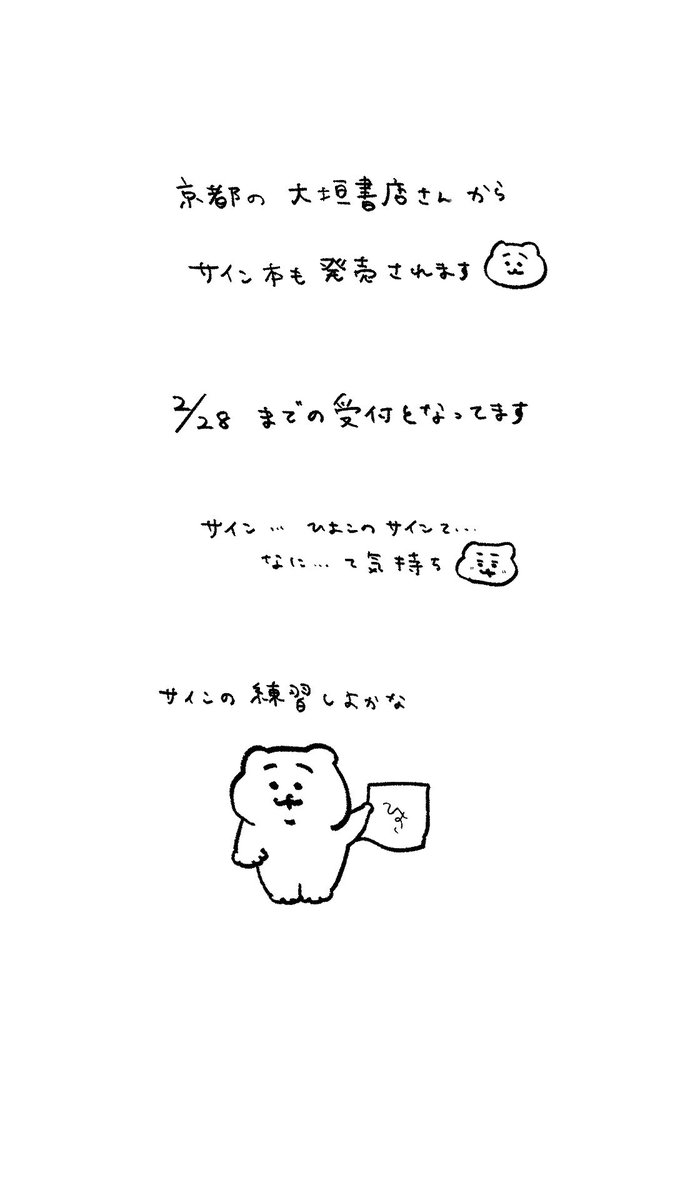 京都の 大垣書店さんから
サイン本も発売されます
2/28 までの受付となってます
サイン… ひよこのサインて…
なに…て気持ち
サインの練習しよかな
ひよこ